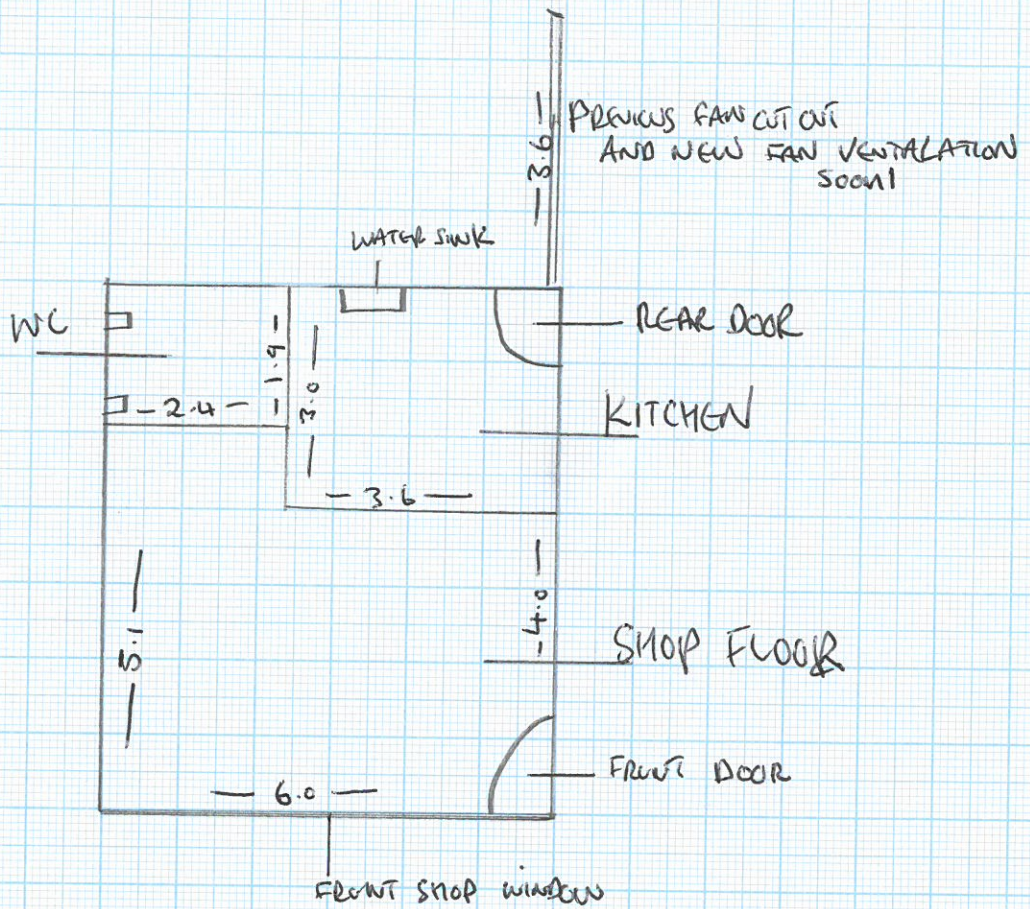 PREVIOUS FAN CUT OUT
AND NEW FAN VENTALATION
SOON!
3.6
WATER SINK
WC
REAR DOOR
1.9
3.0
2.4
KITCHEN
3.6
4.0
5.1
SHOP FLOOR
FRONT DOOR
6.0
FRONT SHOP WINDOW